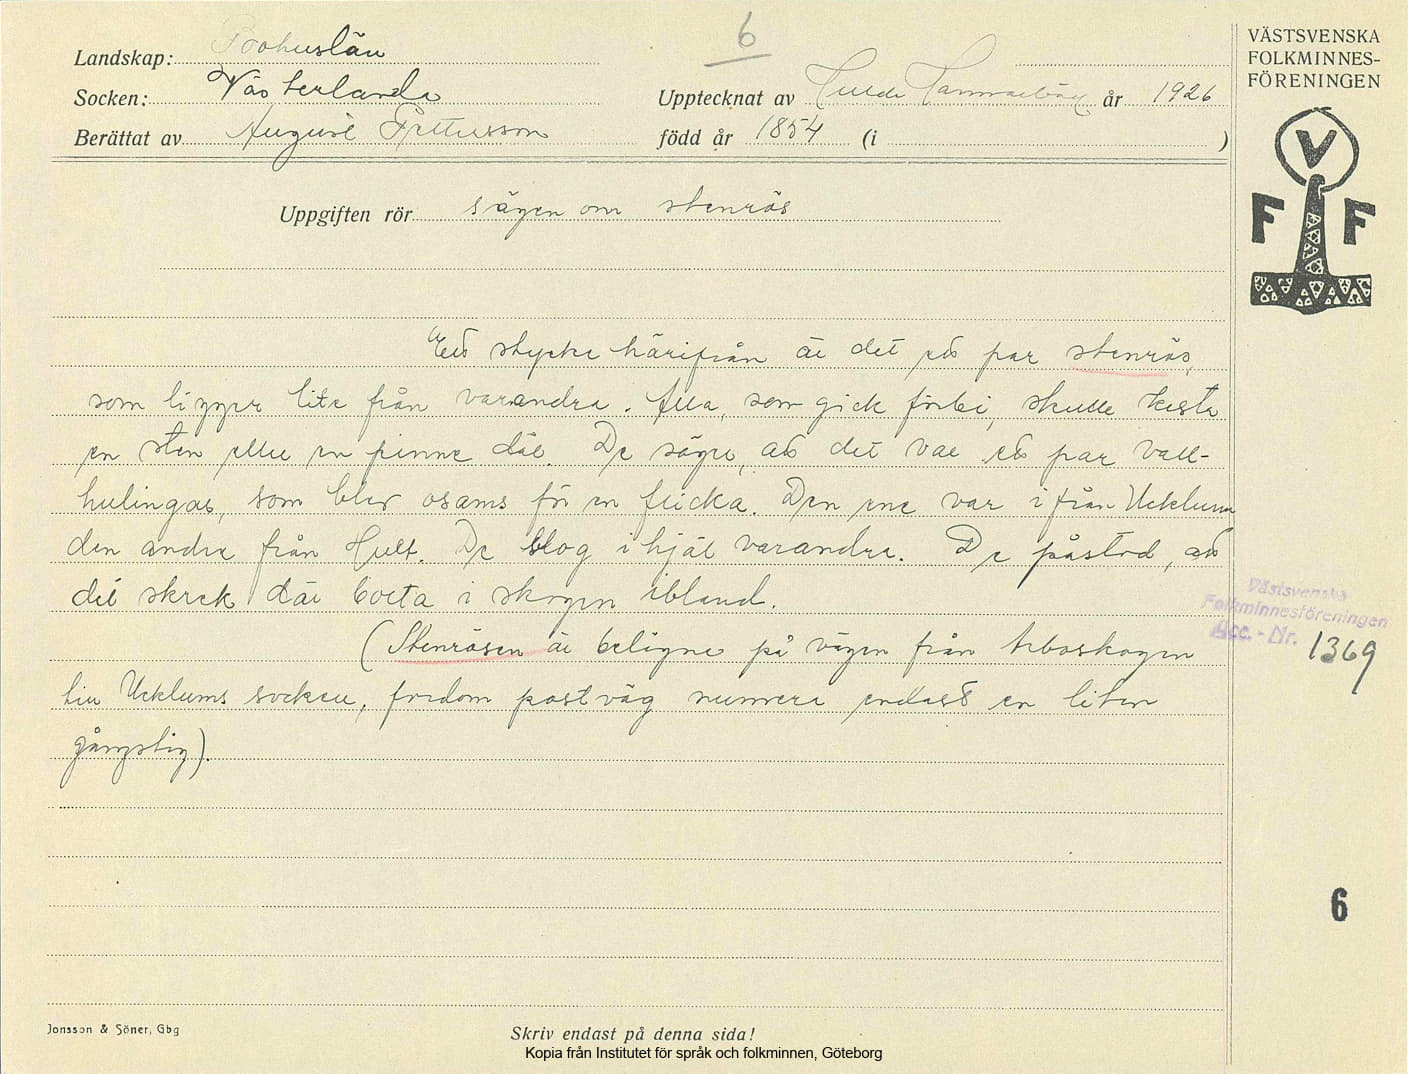 6
Landskap: Bohuslän
Socken: Västerlanda
Berättat av August Pettersson
Upptecknat av år 1926
född år 1854 (i )
VÄSTSVENSKA
FOLKMINNES-
FÖRENINGEN
V
F F
Uppgiften rör sägen om stenrös
Ett stycke härifrån är det ett par stenrös,
som ligger lite från varandra. Alla, som gick förbi, skulle kasta
en sten eller en pinne där. De säger, att det var ett par vall-
hulingar, som blev osams för en flicka. Den ene var ifrån Ucklum
den andre från Hult. De slog ihjäl varandra. De påstod, att
det skrek där borta i skogen ibland.
(Stenrösen är belägne på vägen från
till Ucklums socken, fordom postväg numera endast en liten
gångstig).
Västsvenska
Folkminnesföreningen
Acc.-Nr. 1369
6
Jonsson & Söner, Gbg
Skriv endast på denna sida!
Kopia från Institutet för språk och folkminnen, Göteborg